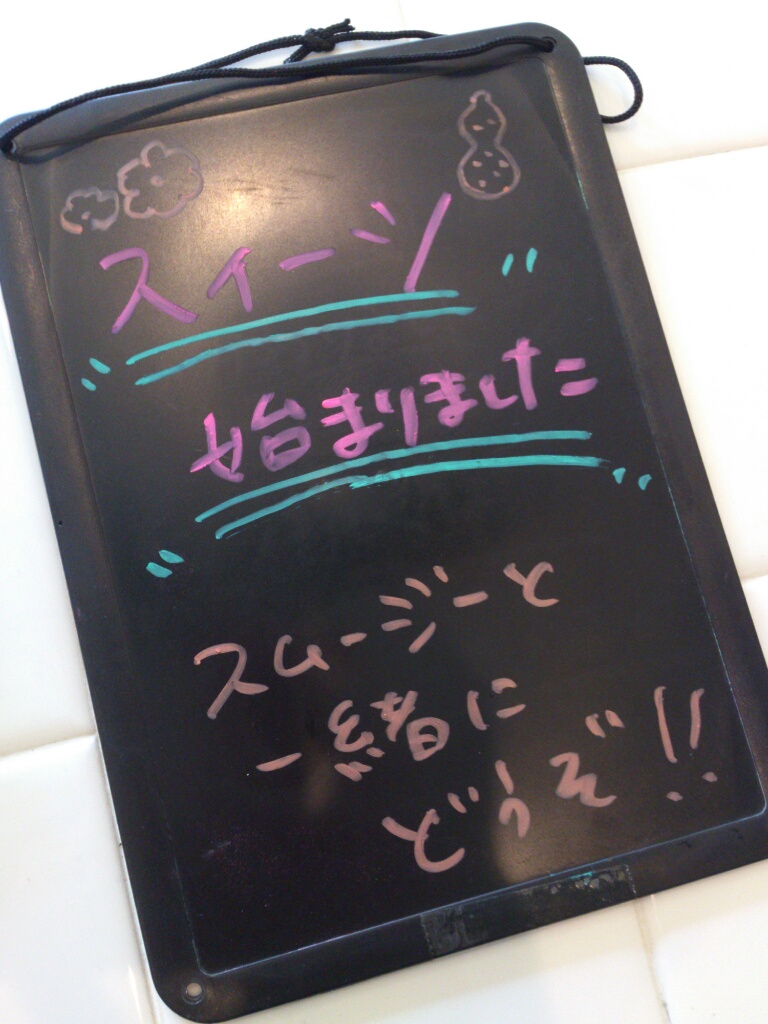 スイーツ
始まりました
スムージーと
一緒に
どうぞ!!